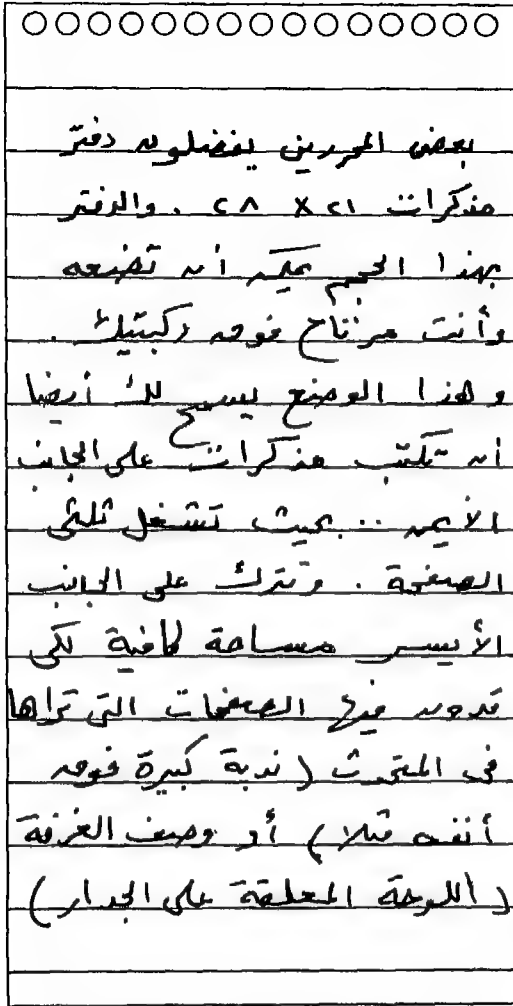 بعض المحررين يفضلون دفتر
مذكرات ٢١ × ٢٨ . والدفتر
بهذا الحجم يمكن أن تضعه
وأنت مرتاح فوق ركبتيك .
وهذا الوضع يسمح لك أيضا
أن تكتب مذكرات على الجانب
الأيمن .. بحيث تشغل ثلثى
الصفحة . وتترك على الجانب
الأيسر مساحة كافية لكى
تدون فيها الصفات التى تراها
فى المتحدث ( ندبة كبيرة فوق
أنفه مثلا ) أو وصف الغرفة
( اللوحة المعلقة على الجدار )